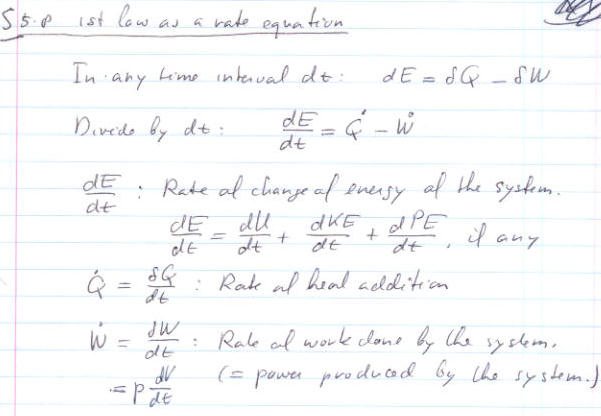 § 5.8 1st law as a rate equation
In any time interval dt: dE = δQ - δW
Divide by dt: dE/dt = Q̇ - Ẇ
dE/dt : Rate of change of energy of the system.
dE/dt = dU/dt + dKE/dt + dPE/dt, if any
Q̇ = δQ/dt : Rate of heat addition
Ẇ = δW/dt : Rate of work done by the system.
= p dV/dt (= power produced by the system.)